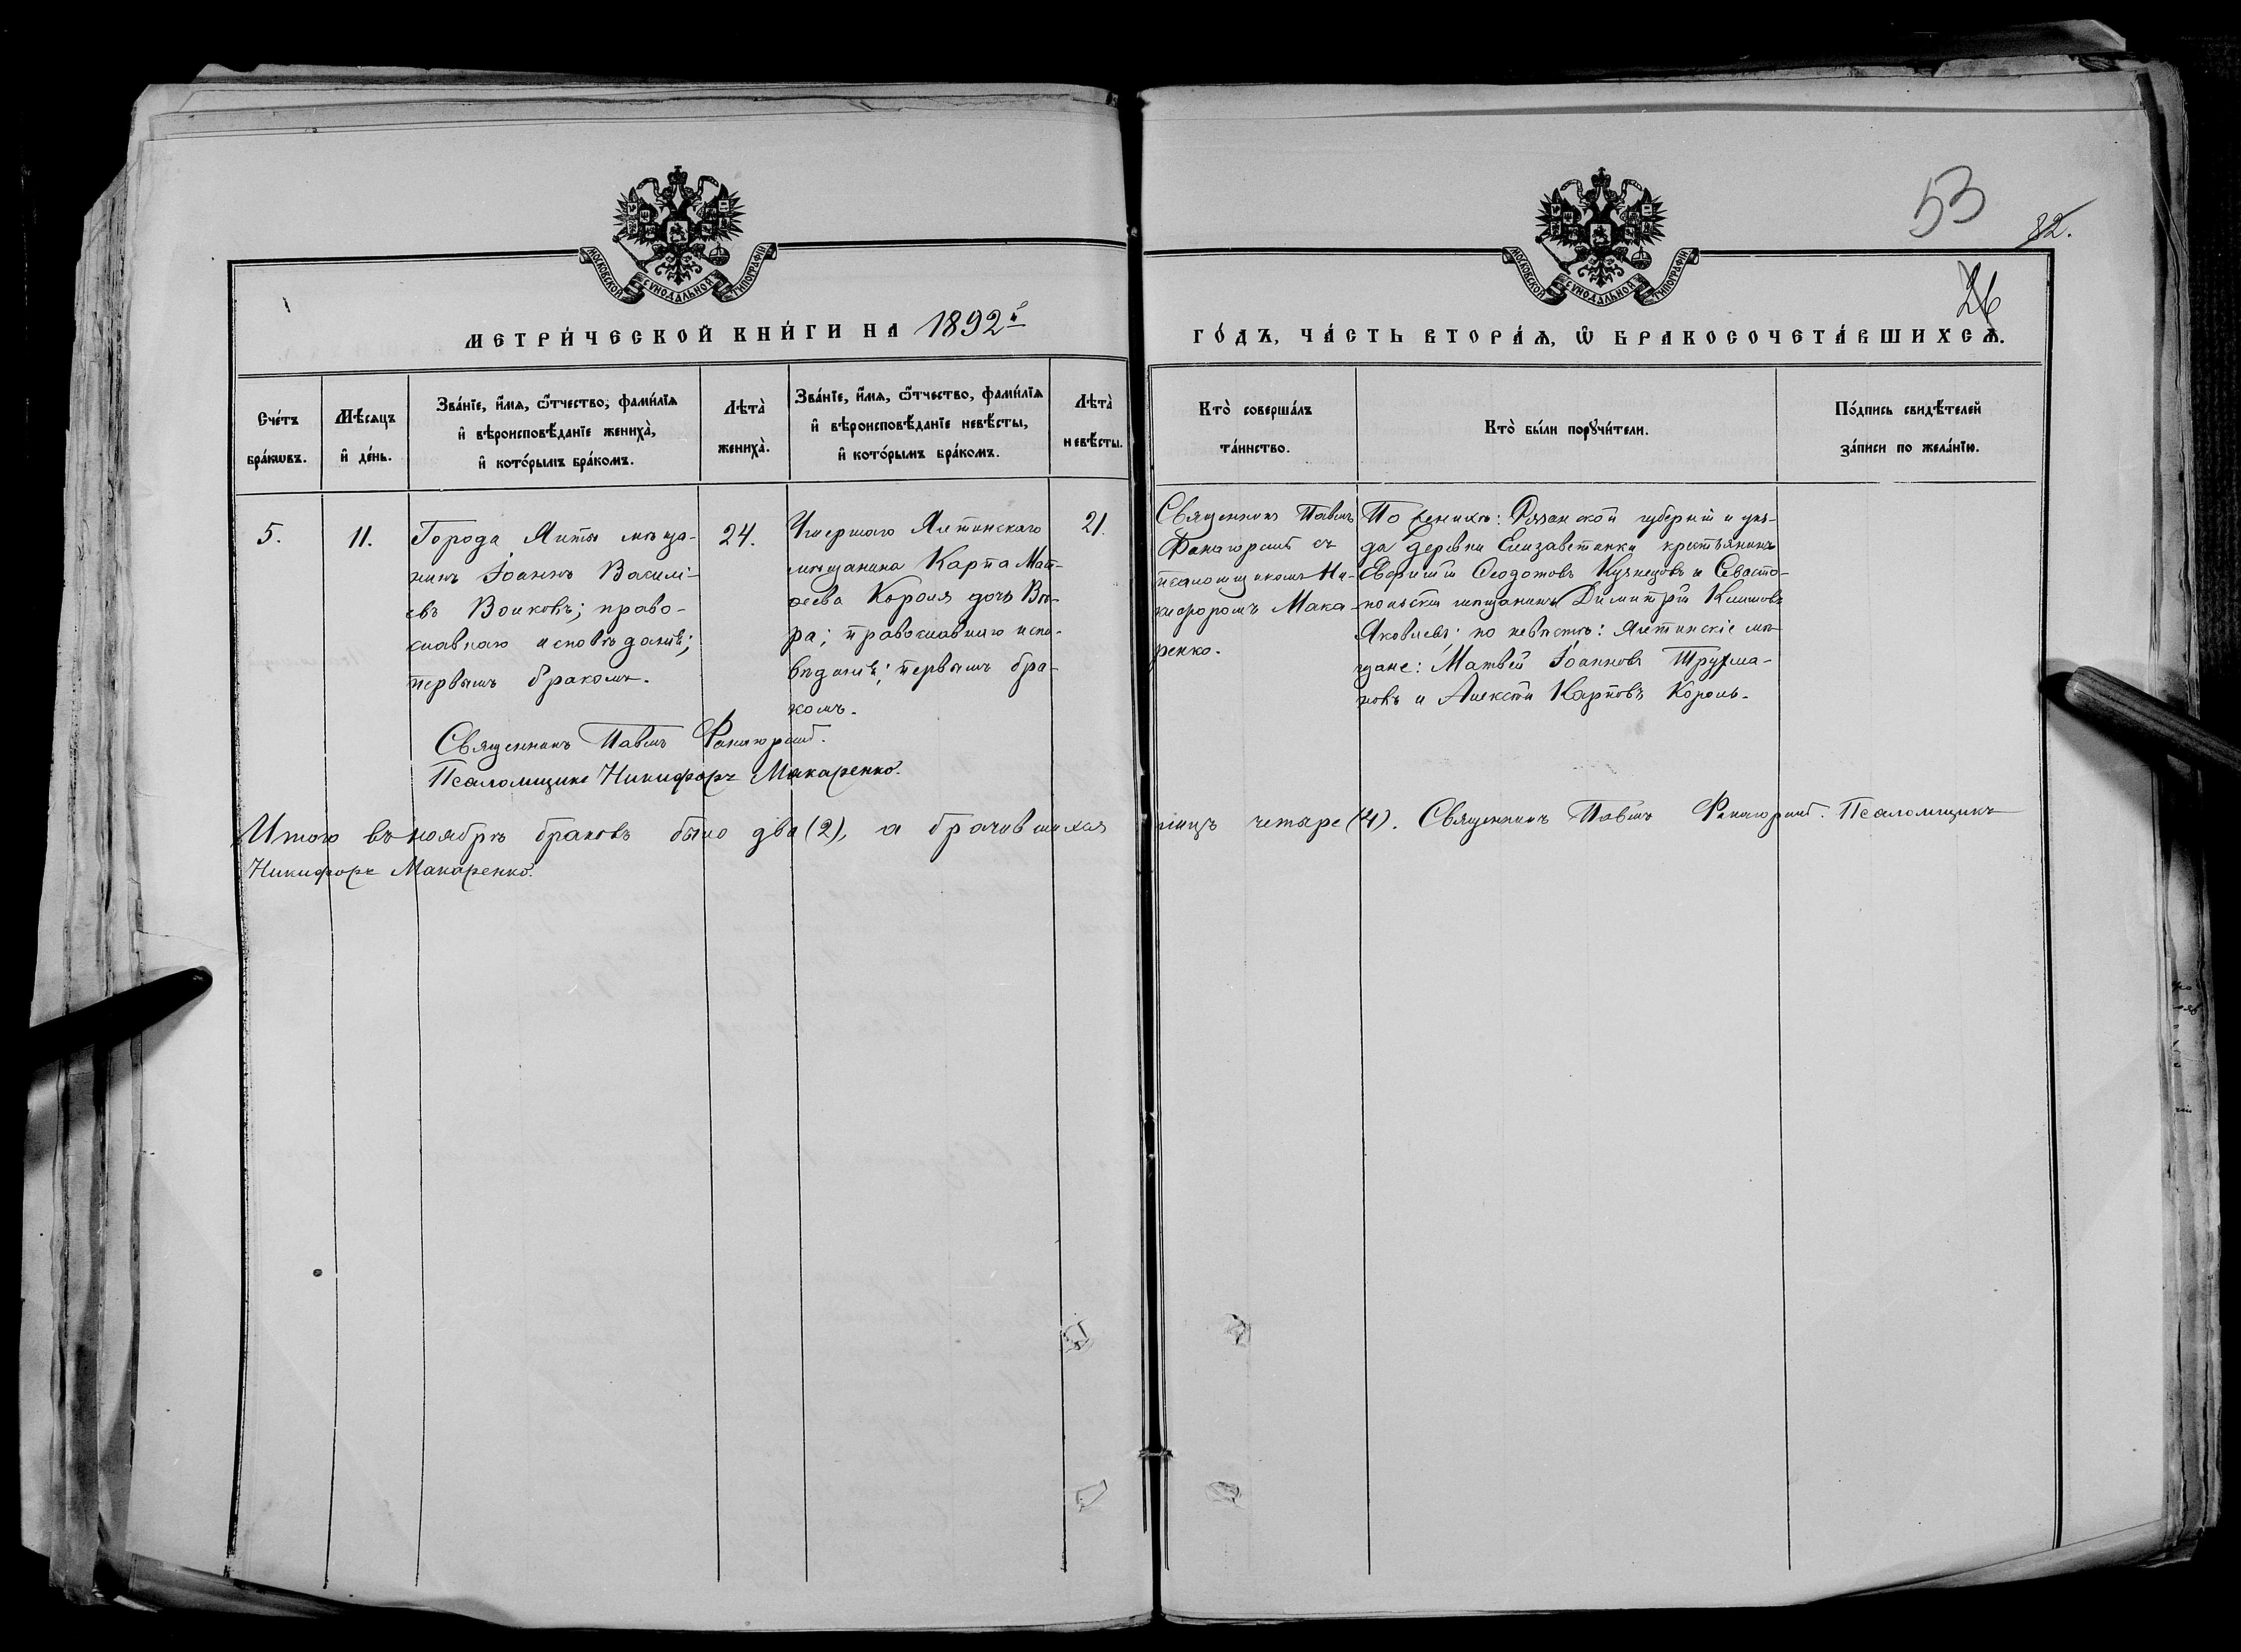 53
82.
26
МОСКОВСКОЙ СѴНОДАЛЬНОЙ ТИПОГРАФІИ
МОСКОВСКОЙ СѴНОДАЛЬНОЙ ТИПОГРАФІИ
МЕТРИ́ЧЕСКОЙ КНИ́ГИ НА 1892й
ГО́ДЪ, ЧА́СТЬ ВТОРА́Ѧ, Ѽ БРАКОСОЧЕТА́ВШИХСѦ.
Сче́тъ
бра́кѡвъ.
Мѣ́сяцъ
и҆ де́нь.
Зва́нїе, и҆́мя, ѻ҆́тчество, фами́лїя
и҆ вѣроисповѣ́данїе жениха̀,
и҆ кото́рымъ бра́комъ.
Лѣта̀
жениха̀.
Зва́нїе, и҆́мя, ѻ҆́тчество, фами́лїя
и҆ вѣроисповѣ́данїе невѣ́сты,
и҆ кото́рымъ бра́комъ.
Лѣта̀
невѣ́сты.
Кто̀ соверша́лъ
та́инство.
Кто̀ бы́ли порꙋчи́тели.
По́дпись свидѣ́телей
за́писи по жела́нїю.
5.
11.
Города Ялты мѣща-
нинъ Іоаннъ Василі-
евъ Волковъ; право-
славнаго исповѣданія;
первымъ бракомъ.
24.
Умершаго Ялтинскаго
мѣщанина Карпа Мат-
ѳеева Короля дочь Вѣ-
ра; православнаго испо-
вѣданія; первымъ бра-
комъ.
21.
Священникъ Павелъ
съ
псаломщикомъ Ни-
кифоромъ Мака-
ренко.
По женихѣ: Рязанской губерніи и уѣз-
да деревни Елизаветинки крестьянинъ
Евфимій Ѳеодотовъ Кузнецовъ и Севасто-
польскій мѣщанинъ Димитрій Климовъ
Яковлевъ; по невѣстѣ: Ялтинскіе мѣ-
щане: Матвѣй Іоанновъ Трухма-
новъ и Алексѣй Карповъ Король.
Священникъ Павелъ
Псаломщикъ Никифоръ Макаренко.
Итого въ ноябрѣ браковъ было два (2), а брачившихся лицъ четыре (4). Священникъ Павелъ Псаломщикъ
Никифоръ Макаренко.